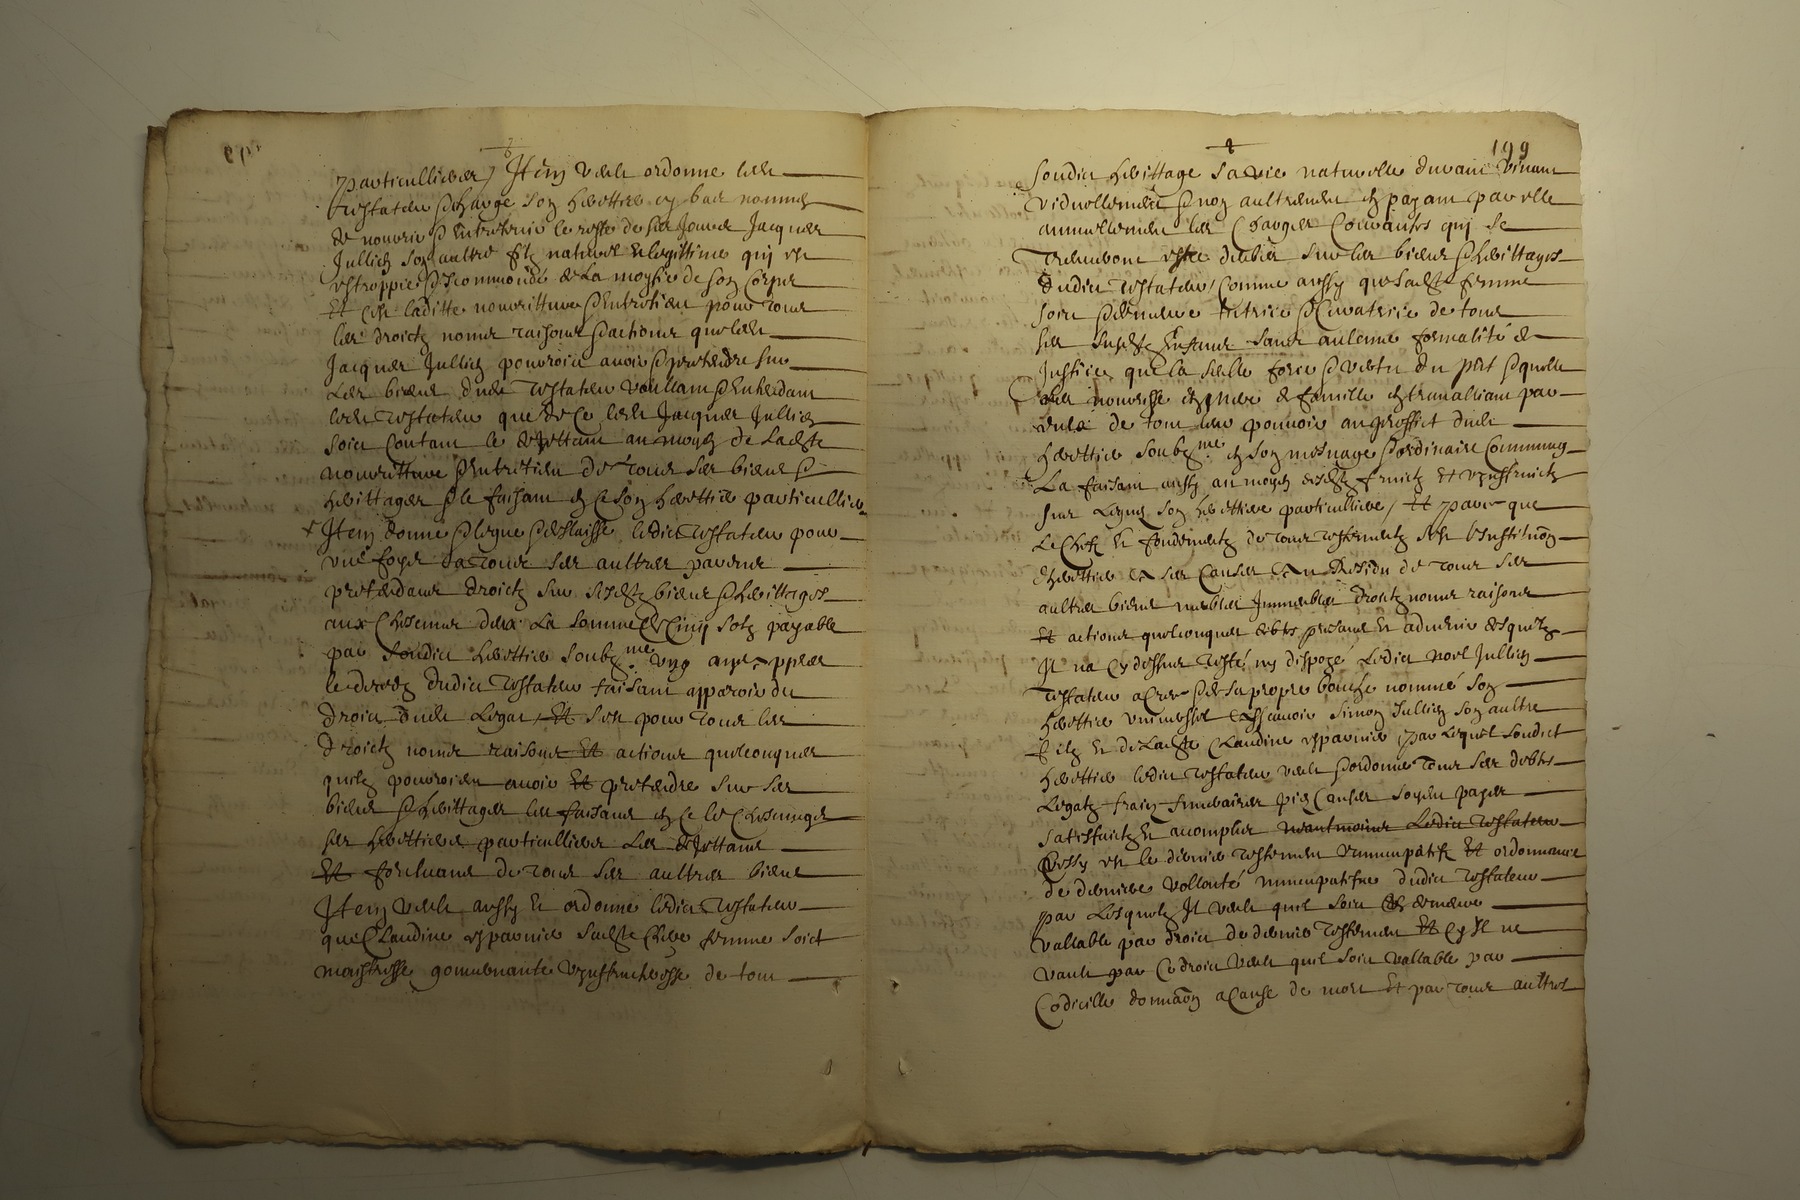 particullieres / Item veult ordonne ledit
testateur & charge son herettier cy bas nommé
de nourrir & entretenir le reste de ses jours Jacques
Jullien son aultre filz naturel et legittime qui est
estroppié & incommodé de la moytié de son corps
Et c'est laditte nourritture & entretien pour tous
les droictz noms raisons & actions que ledit
Jacques Jullien pourroict avoir & pretendre sur
les biens dudit testateur voullant & entendant
ledit testateur que de ce ledit Jacques Jullien
soict contant le dejettant au moyen de ladte
nourritture & entretien de tous ses biens &
herittages & le faisant en ce son herettier particullier
Item donne & legue & deslaisse ledict testateur pour
une foys a tous ses aultres parens
pretendans droictz sur sesdtz biens & herittages
aux chescuns deux la somme de cinq solz payable
par sondict herettier soubz.me ung an appres
le decedz dudict testateur faisant apparoir du
droict dudit legat, Et s'est pour tous les
droictz noms raisons Et actions quelconques
quilz pourroient avoir Et pretendre sur ses
biens & herittages les faisans en ce le chesungz
ses herettiers particulliers les dejettans
Et forcluans de tous ses aultres biens
Item veult aussy et ordonne ledict testateur
que Claudine esparnier sadte chere femme soict
maistresse gouvernante uzufructeresse de tout
199
sondict herittage sa vie naturelle durant vivant
viduellement & non aultrement en payant par elle
annuellement les charges courantes qui se
treuveront estre deubes sur les biens & herittages
dudict testateur / comme aussy que sadte femme
soict & demeure tutrice & curatrice de tous
ses susdtz enfans sans aulcune formalité de
justice que la seulle force & vertu du pnt & quelle
les nourrisse en mere de famille en travalliant par
eulx de tout leur pouvoir au proffict dudit
herettier soubz.me en son mesnage & ordinaire commung
La faisant aussy au moyen desdtz fruictz et uzuffruictz
sur legués son herettiere particulliere / Et par ce que
le chefz et fondementz de tous testementz est l'institution
dherettier a ses causes & au residu de tous ses
aultres biens meubles immeubles droictz noms raisons
Et actions quelconques debtes presans et advenir desquelz
Il na cy dessus testé ny dispozé ledict noel Jullien
testateur a crée & de sa propre bouche nommé son
herettier universsel assavoir Simon Jullien son aultre
filz et de ladte Claudine esparnier par lequel sondict
herettier ledict testateur veult & ordonne tous ses debtes
legatz fraiz funeraires piez causes soyent payes
satisfaictz et acomplies neantmoins ledict testateur
Cessy est le dernier testement nuncupatifz Et ordonnance
de derniere vollonté nuncupatifve dudict testateur
par lesquelz Il veult quil soict et demeure
vallable par droict de dernier testement Et cy Il ne
vault par ce droict veult quil soict vallable par
codicille donnaon a cause de mort Et par tous aultres